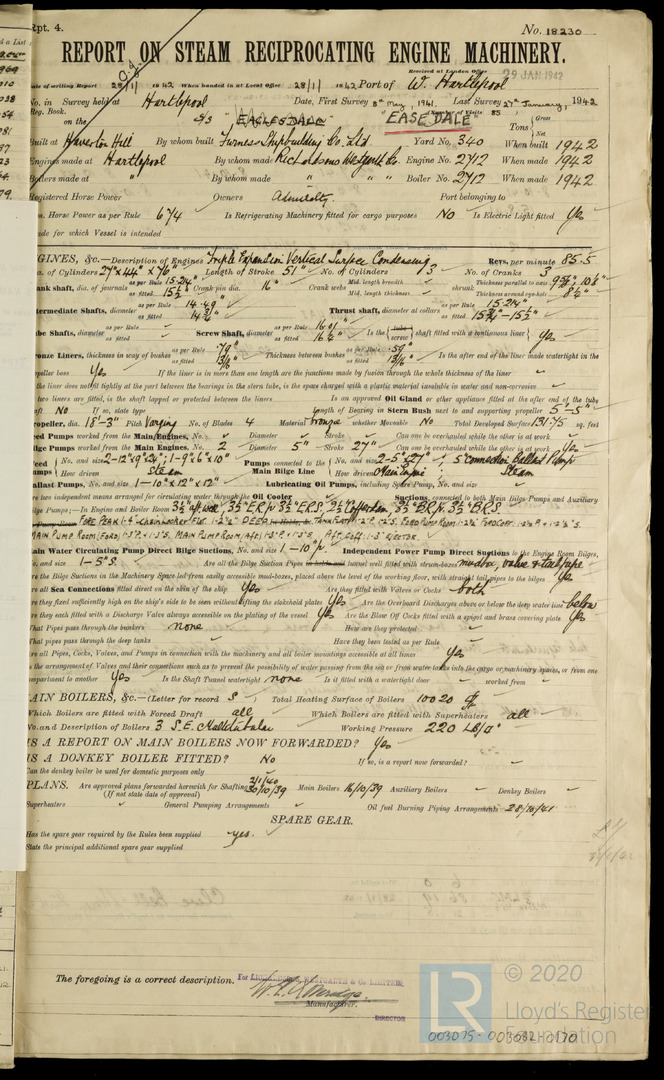 Rpt. 4.
No. 18230
REPORT ON STEAM RECIPROCATING ENGINE MACHINERY.
Received at London Office
29 JAN 1942
Date of writing Report 28/11 1942 When handed in at Local Office 28/11 1942 Port of W. Hartlepool
No. in Survey held at Hartlepool Date, First Survey 8th May, 1941 Last Survey 27th January, 1942
Reg. Book. Number of Visits 85
on the S/S "EAGLESDALE" "EASEDALE" Tons Gross Net
Built at Haverton Hill By whom built Furness Shipbuilding Co. Ltd Yard No. 340 When built 1942
Engines made at Hartlepool By whom made Richardsons Westgarth Co. Engine No. 2712 When made 1942
Boilers made at " By whom made " " " Boiler No. 2712 When made 1942
Registered Horse Power Owners Admiralty. Port belonging to
Nom. Horse Power as per Rule 674 Is Refrigerating Machinery fitted for cargo purposes No Is Electric Light fitted Yes
Trade for which Vessel is intended
ENGINES, &c.—Description of Engines Triple Expansion Vertical Surface Condensing Revs. per minute 85.5
Dia. of Cylinders 27" x 44" x 76" Length of Stroke 51" No. of Cylinders 3 No. of Cranks 3
Crank shaft, dia. of journals as per Rule 15.214" as fitted 15½" Crank pin dia. 16" Crank webs Mid. length breadth Mid. length thickness shrunk Thickness parallel to axis Thickness around eye-hole
Intermediate Shafts, diameter as per Rule 14.49" as fitted 14¾" Thrust shaft, diameter at collars as per Rule 15.214" as fitted
Tube Shafts, diameter as per Rule as fitted Screw Shaft, diameter as per Rule 16.01 as fitted 16¼" Is the tube screw shaft fitted with a continuous liner Yes
Bronze Liners, thickness in way of bushes as per Rule .79" as fitted 13/16" Thickness between bushes as per Rule .59" as fitted 13/16" Is the after end of the liner made watertight in the
propeller boss Yes If the liner is in more than one length are the junctions made by fusion through the whole length of the liner
If the liner does not fit tightly at the part between the bearings in the stern tube, is the space charged with a plastic material insoluble in water and non-corrosive
If two liners are fitted, is the shaft lapped or protected between the liners Is an approved Oil Gland or other appliance fitted at the after end of the tube
shaft No If so, state type Length of Bearing in Stern Bush next to and supporting propeller 5'-5"
Propeller, dia. 18'-3" Pitch Varying No. of Blades 4 Material bronze whether Moveable No Total Developed Surface 131.75 sq. feet
Feed Pumps worked from the Main Engines, No. Diameter Stroke Can one be overhauled while the other is at work
Bilge Pumps worked from the Main Engines, No. 2 Diameter 5" Stroke 27" Can one be overhauled while the other is at work Yes
Feed Pumps No. and size 2-12"x9"x24"; 1-9"x6"x10" How driven Steam Pumps connected to the Main Bilge Line No. and size 2-5"x27"; 5" connection Ballast Pump How driven Main Engine Steam
Ballast Pumps, No. and size 1-10"x12"x12" Lubricating Oil Pumps, including Spare Pump, No. and size
Are two independent means arranged for circulating water through the Oil Cooler Suctions, connected to both Main Bilge Pumps and Auxiliary
Bilge Pumps;—In Engine and Boiler Room
Main Water Circulating Pump Direct Bilge Suctions, No. and size 1-10" Independent Power Pump Direct Suctions to the Engine Room Bilges,
No. and size 1-5"S. Are all the Bilge Suction Pipes in holds and tunnel well fitted with strum-boxes mudbox, valve & tailpipe
Are the Bilge Suctions in the Machinery Space led from easily accessible mud-boxes, placed above the level of the working floor, with straight tail pipes to the bilges Yes
Are all Sea Connections fitted direct on the skin of the ship Yes Are they fitted with Valves or Cocks both
Are they fixed sufficiently high on the ship's side to be seen without lifting the stokehold plates Yes Are the Overboard Discharges above or below the deep water line below
Are they each fitted with a Discharge Valve always accessible on the plating of the vessel Yes Are the Blow Off Cocks fitted with a spigot and brass covering plate Yes
What Pipes pass through the bunkers none How are they protected
What pipes pass through the deep tanks Have they been tested as per Rule
Are all Pipes, Cocks, Valves, and Pumps in connection with the machinery and all boiler mountings accessible at all times Yes
Is the arrangement of Valves and their connections such as to prevent the possibility of water passing from the sea or from water tanks into the cargo or machinery spaces, or from one
compartment to another Yes Is the Shaft Tunnel watertight none Is it fitted with a watertight door worked from
MAIN BOILERS, &c.—(Letter for record S) Total Heating Surface of Boilers 10020
Which Boilers are fitted with Forced Draft all Which Boilers are fitted with Superheaters all
No. and Description of Boilers 3 S.E. Multitubular Working Pressure 220 Lb/□"
IS A REPORT ON MAIN BOILERS NOW FORWARDED? Yes
IS A DONKEY BOILER FITTED? No If so, is a report now forwarded?
Can the donkey boiler be used for domestic purposes only
PLANS. Are approved plans forwarded herewith for Shafting 2/1/40 30/10/39 Main Boilers 16/10/39 Auxiliary Boilers Donkey Boilers
(If not state date of approval)
Superheaters General Pumping Arrangements Oil fuel Burning Piping Arrangements 28/10/41
SPARE GEAR.
Has the spare gear required by the Rules been supplied yes.
State the principal additional spare gear supplied
The foregoing is a correct description.
For RICHARDSONS, WESTGARTH & Co. LIMITED
Manufacturer.
DIRECTOR
LR
© 2020
Lloyd's Register
Foundation
003075-003082-0170